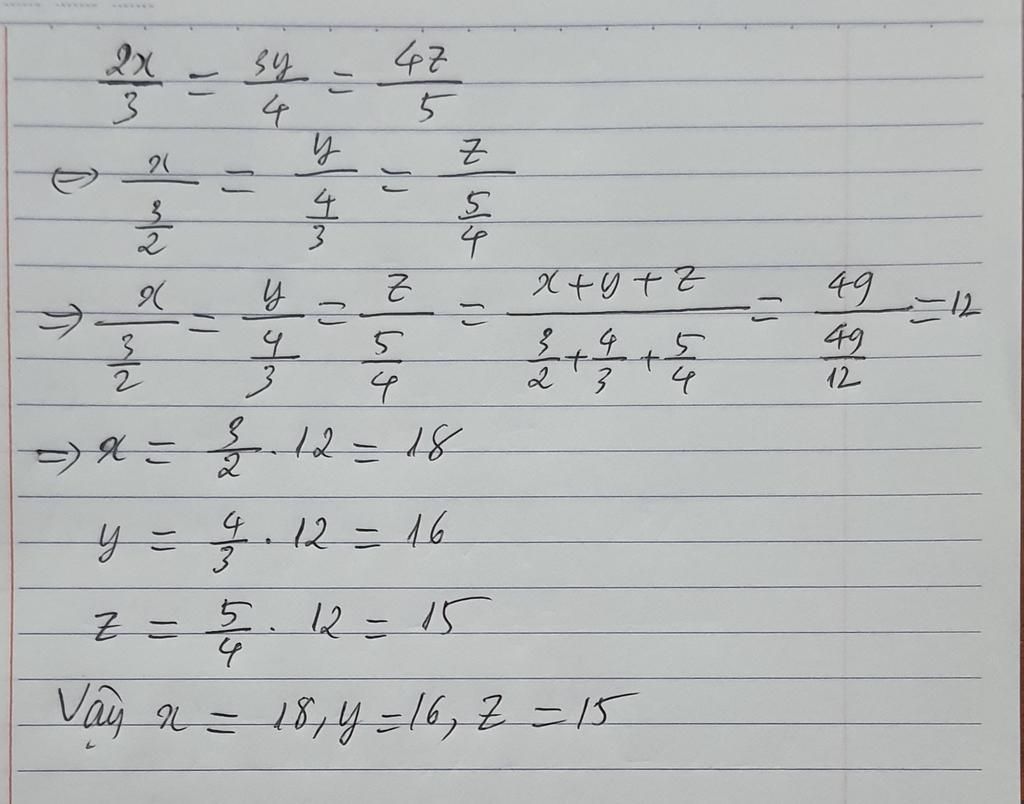 2x/3 = 3y/4 = 4z/5
⇔ x/(3/2) = y/(4/3) = z/(5/4)
⇒ x/(3/2) = y/(4/3) = z/(5/4) = (x+y+z)/(3/2+4/3+5/4) = 49/(49/12) = 12
⇒ x = 3/2 . 12 = 18
y = 4/3 . 12 = 16
z = 5/4 . 12 = 15
Vậy x = 18, y = 16, z = 15